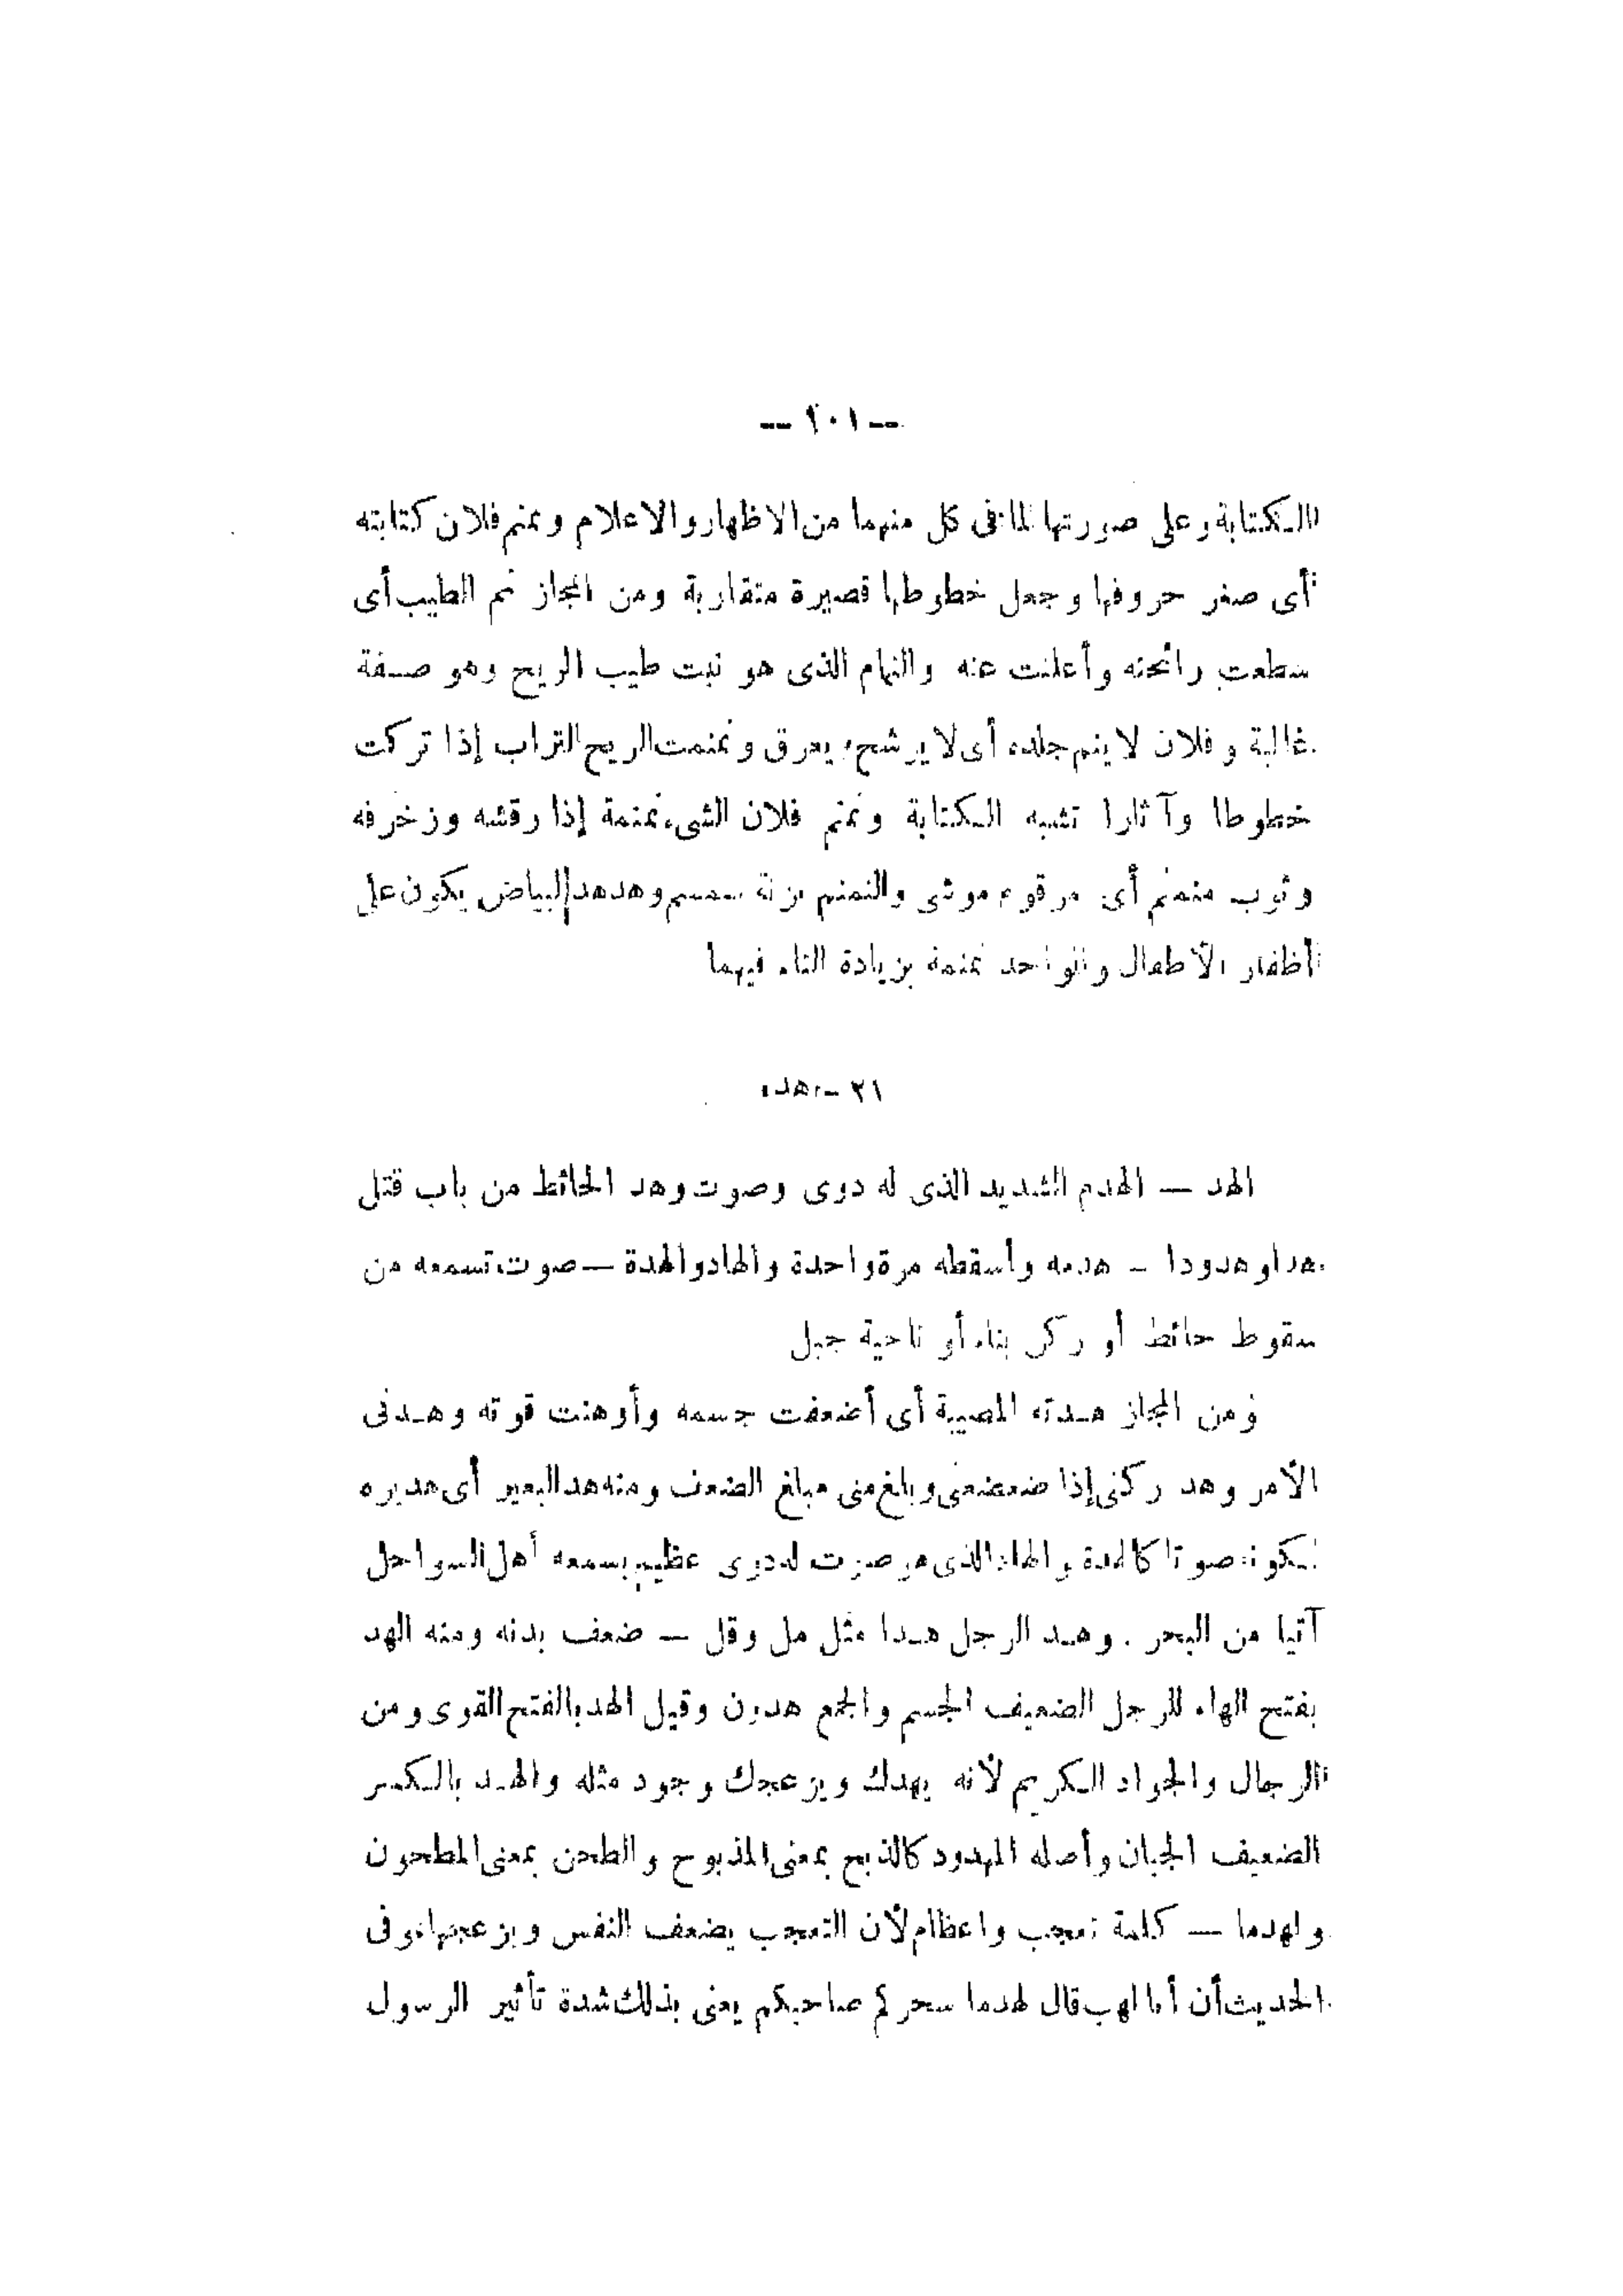 — ٢٠١ —
الكتابة وعلى صورتها لما فى كل منهما من الاظهار والاعلام ونمنم فلان كتابته
أى صغر حروفها وجعل خطوطها قصيرة متقاربة ومن المجاز نم الطيب أى
سطعت رائحته وأعلنت عنه والنمام الذى هو نبت طيب الريح وهو صفة
غالبة وفلان لا ينم جلده أى لا يرشح ويعرق ونمنمت الريح التراب إذا تركت
خطوطا وآثارا تشبه الكتابة ونمنم فلان الشىء نمنمة إذا رقشه وزخرفه
وثوب منمنم أى مرقوم موشى والنمنم بزنة سمسم وهدهد البياض يكون على
أظفار الأطفال والواحد نمنمة بزيادة التاء فيهما
٢١ — هده
الهد — الهدم الشديد الذى له دوى وصوت وهد الحائط من باب قتل
هدا وهدودا — هدمه وأسقطه مرة واحدة والهاد والهدة — صوت تسمعه من
سقوط حائط أو ركن بناء أو ناحية جبل
ومن المجاز هدته المصيبة أى أضعفت جسمه وأوهنت قوته وهدنى
الأمر وهد ركنى إذا ضعضعنى وبلغ منى مبلغ الضعف ومنه هد البعير أى هديره
لكونه صوتا كالهدة والهاد الذى هو صوت له دوى عظيم يسمعه أهل السواحل
آتيا من البحر . وهد الرجل هدا مثل مل وقل — ضعف بدنه ومنه الهد
بفتح الهاء للرجل الضعيف الجسم والجمع هدون وقيل الهد بالفتح القوى ومن
الرجال والجواد الكريم لأنه يهدك ويزعجك وجود مثله والهد بالكسر
الضعيف الجبان وأصله المهدود كالذبح بمعنى المذبوح والطحن بمعنى المطحون
ولهدما — كلمة تعجب واعظام لأن التعجب يضعف النفس ويزعجها وفى
الحديث أن أبا لهب قال لهدما سحركم صاحبكم يعنى بذلك شدة تأثير الرسول